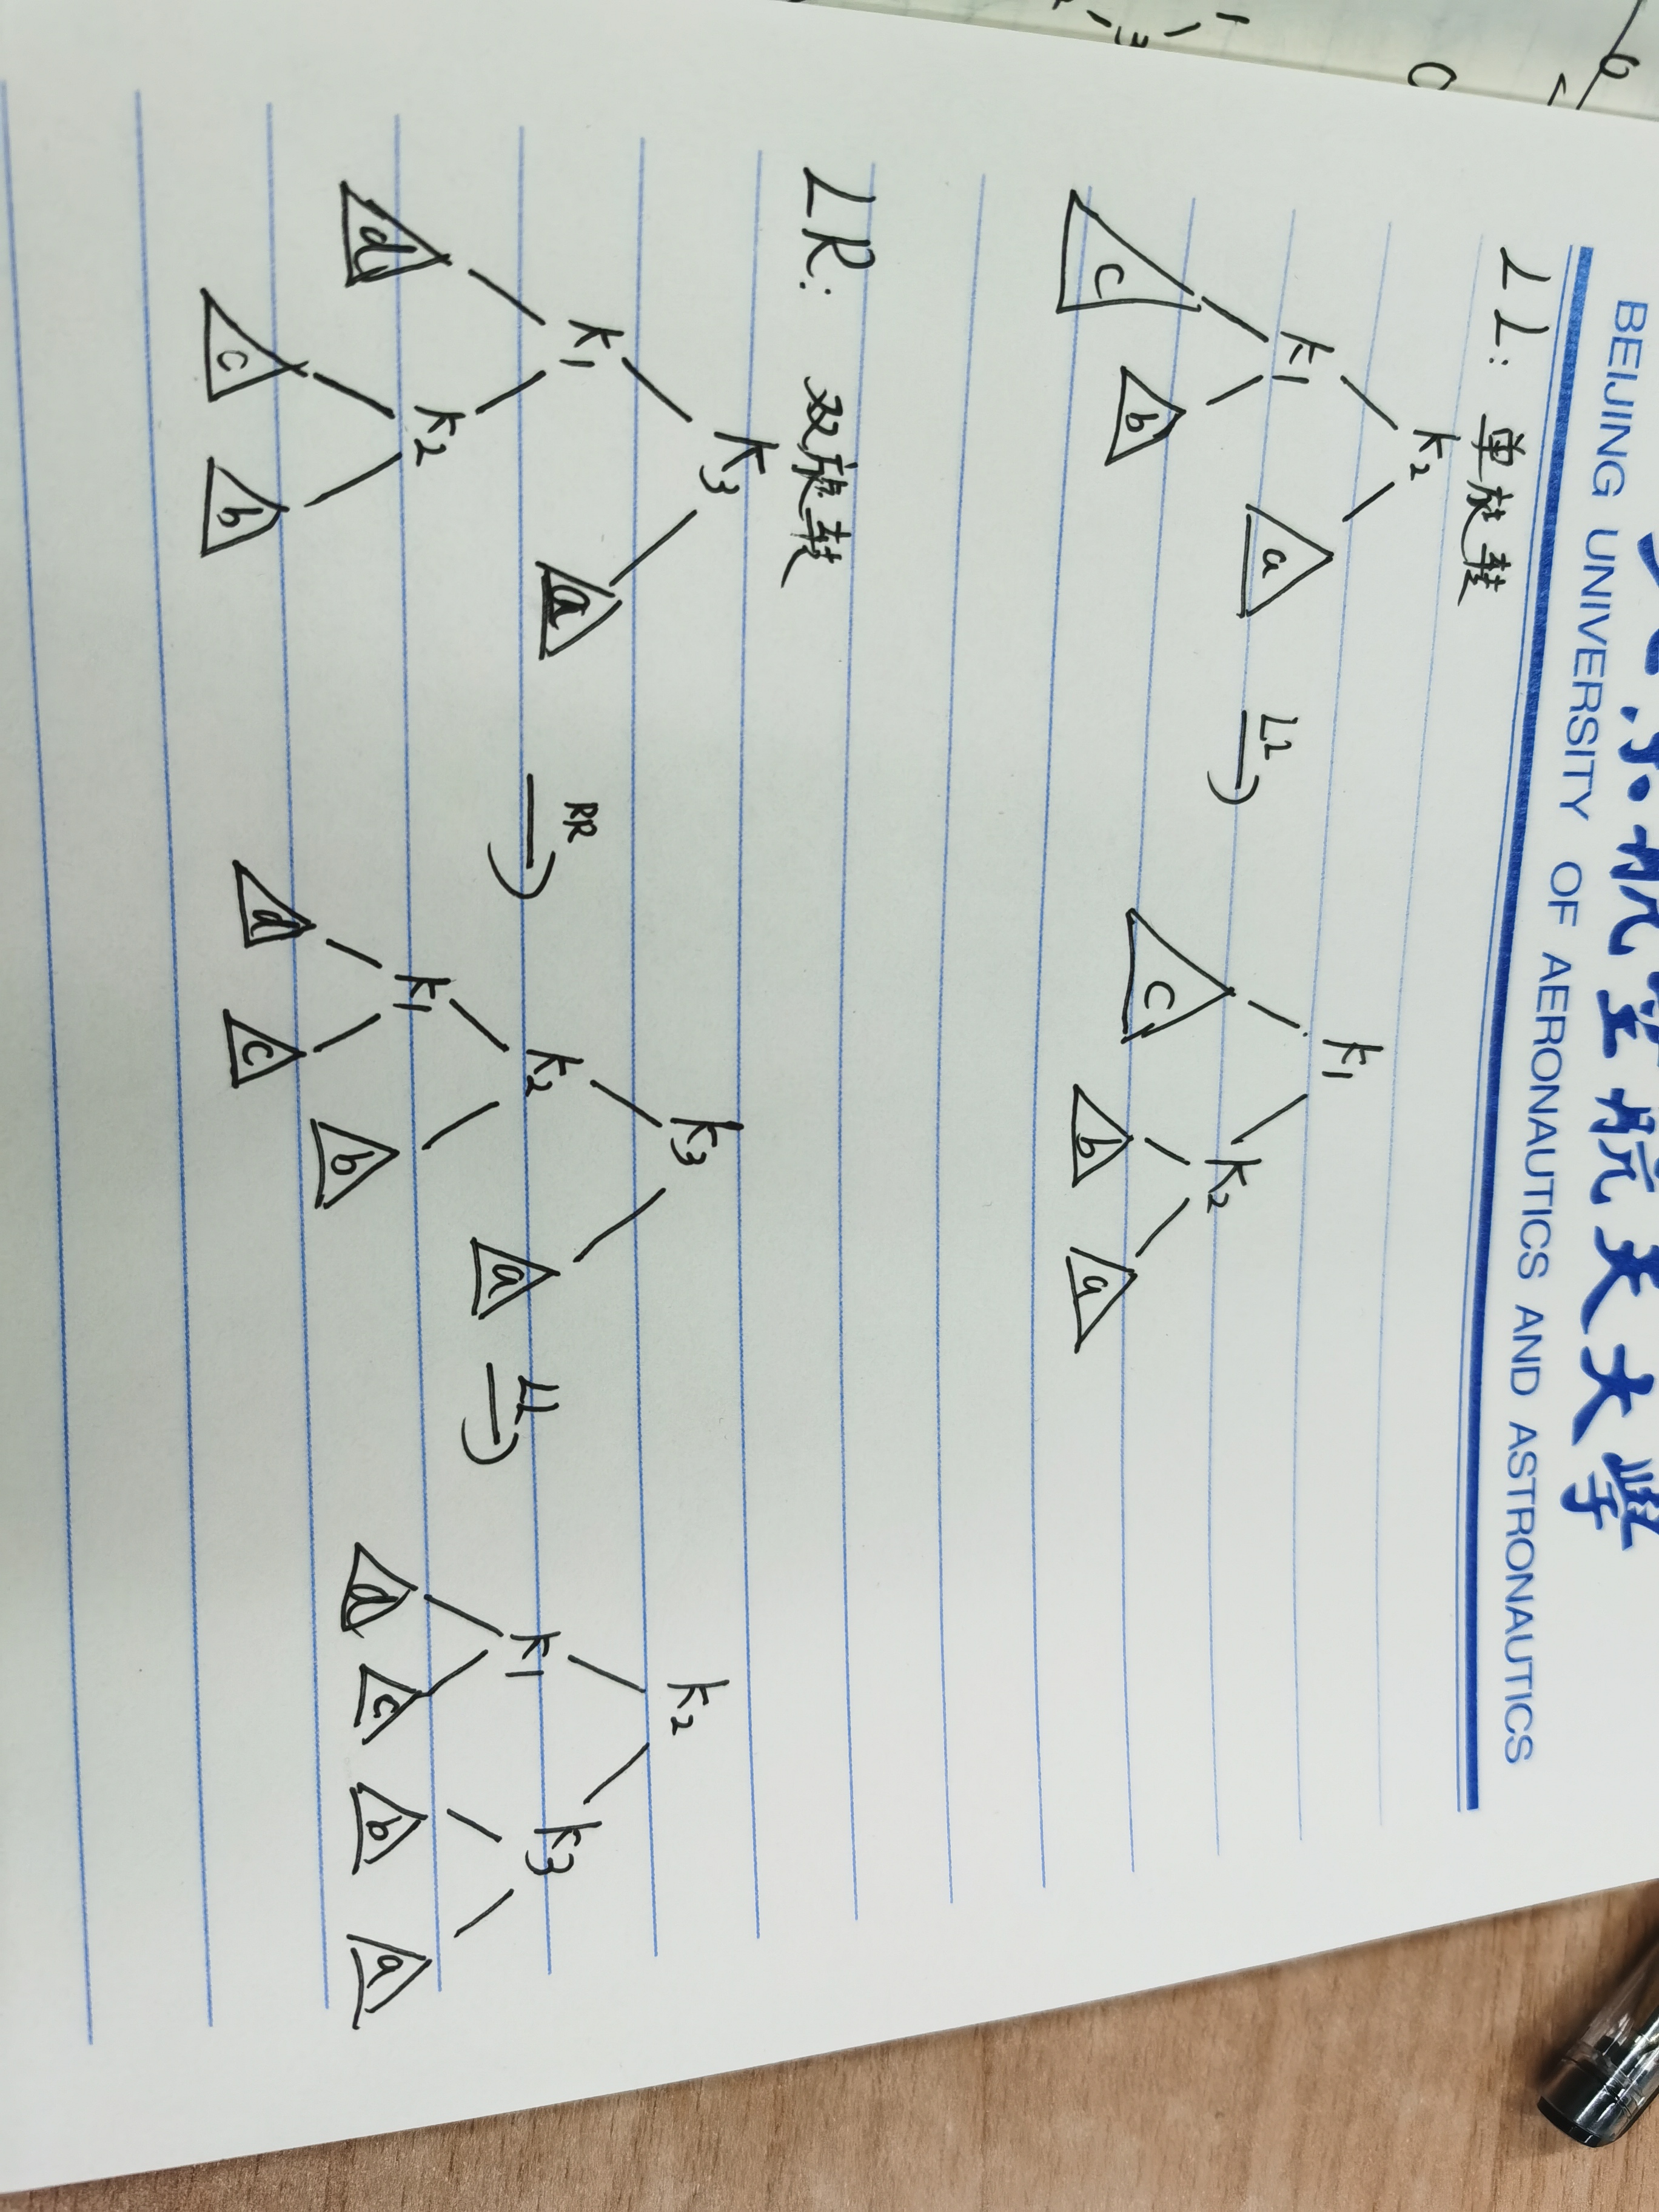 北京航空航天大學
BEIJING UNIVERSITY OF AERONAUTICS AND ASTRONAUTICS
LL: 单旋转
k2
k1 a
c b
LL
k1
c k2
b a
LR: 双旋转
k3
k1 a
d k2
c b
RR
k3
k2 a
k1 b
d c
LL
k2
k1 k3
d c b a